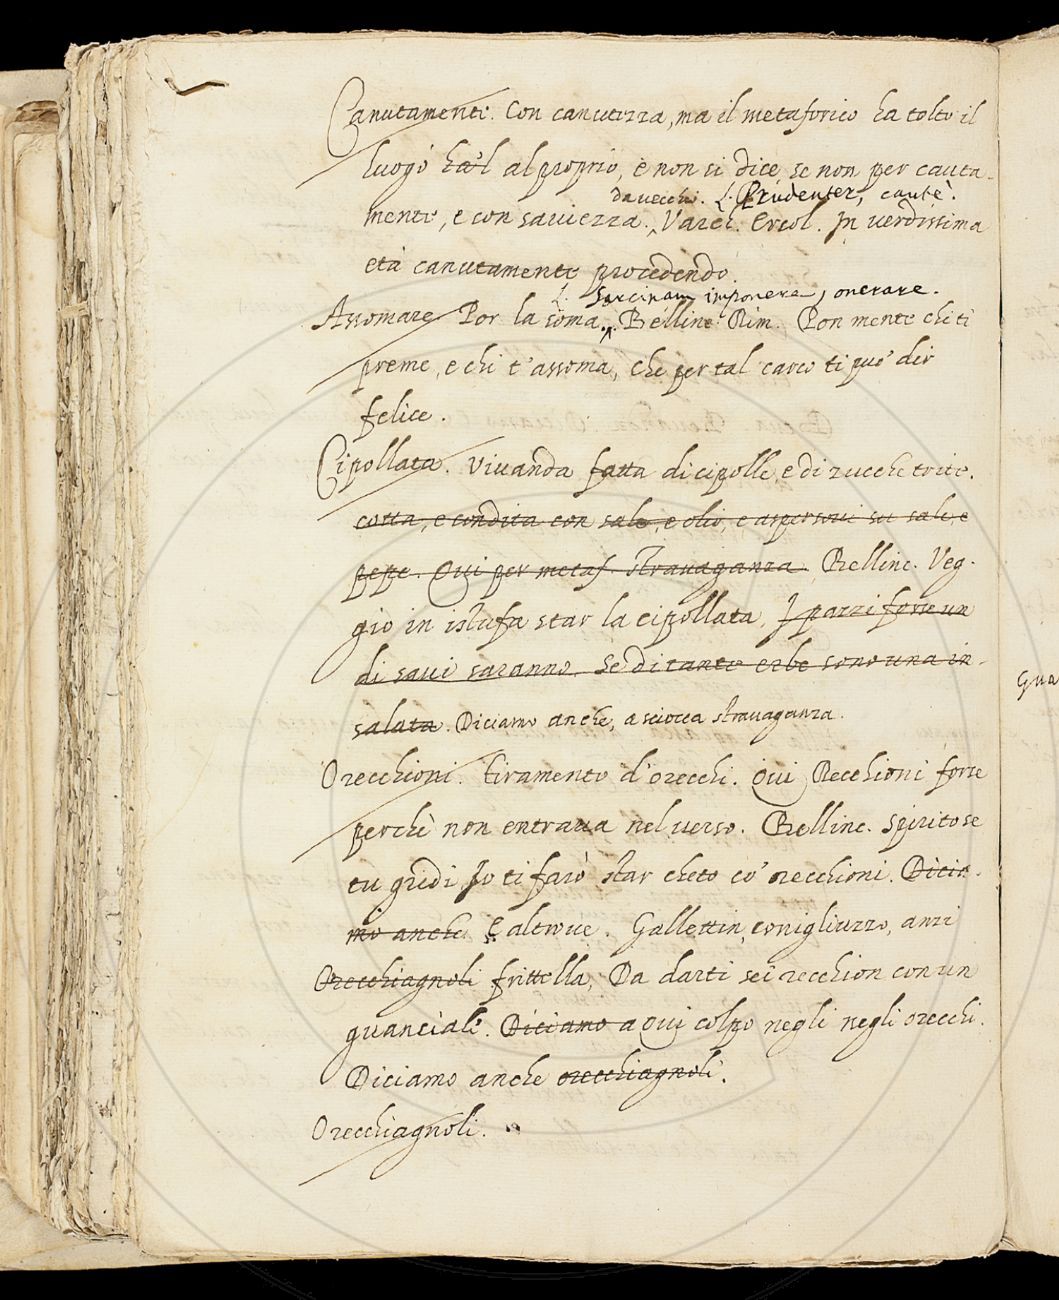 Canutamente. Con canutezza, ma il metaforico ha tolto il
luogo ha'l al proprio, e non si dice se non per cauta-
da vecchi. L. Prudenter, cautè.
mente, e con saviezza. Varch. Ercol. In verdissima
età canutamente procedendo.
L. Sarcinam imponere, onerare.
Assomare Por la soma. Bellinc. Rim. Pon mente chi ti
preme, e chi t'assoma, Che per tal carco ti puo' dir
felice.
Cipollata. Vivanda fatta di cipolle, e di zucche trite.
cotta, e condita con sale, e olio, e aspersovi su sale, e
pepe. Qui per metaf. Stravaganza. Bellinc. Veg-
gio in istufa star la cipollata, I pazzi forse un
di savi saranno. Se di tante erbe sono una in-
salata. Diciamo anche, a sciocca stravaganza.
Orecchioni. Tiramento d'orecchi. Qui Recchioni forse
perchè non entrava nel verso. Bellinc. Spiritose
tu gridi, Io ti farò star cheto co' orecchioni. Dicia-
mo anche E altrove. Gallettin, conigliuzzo, anzi
Orecchiagnoli frittella, Da darti sei recchion con un
guanciale. Diciamo a Qui colpo negli negli orecchi.
Diciamo anche orecchiagnoli.
Orecchiagnoli.
Gua